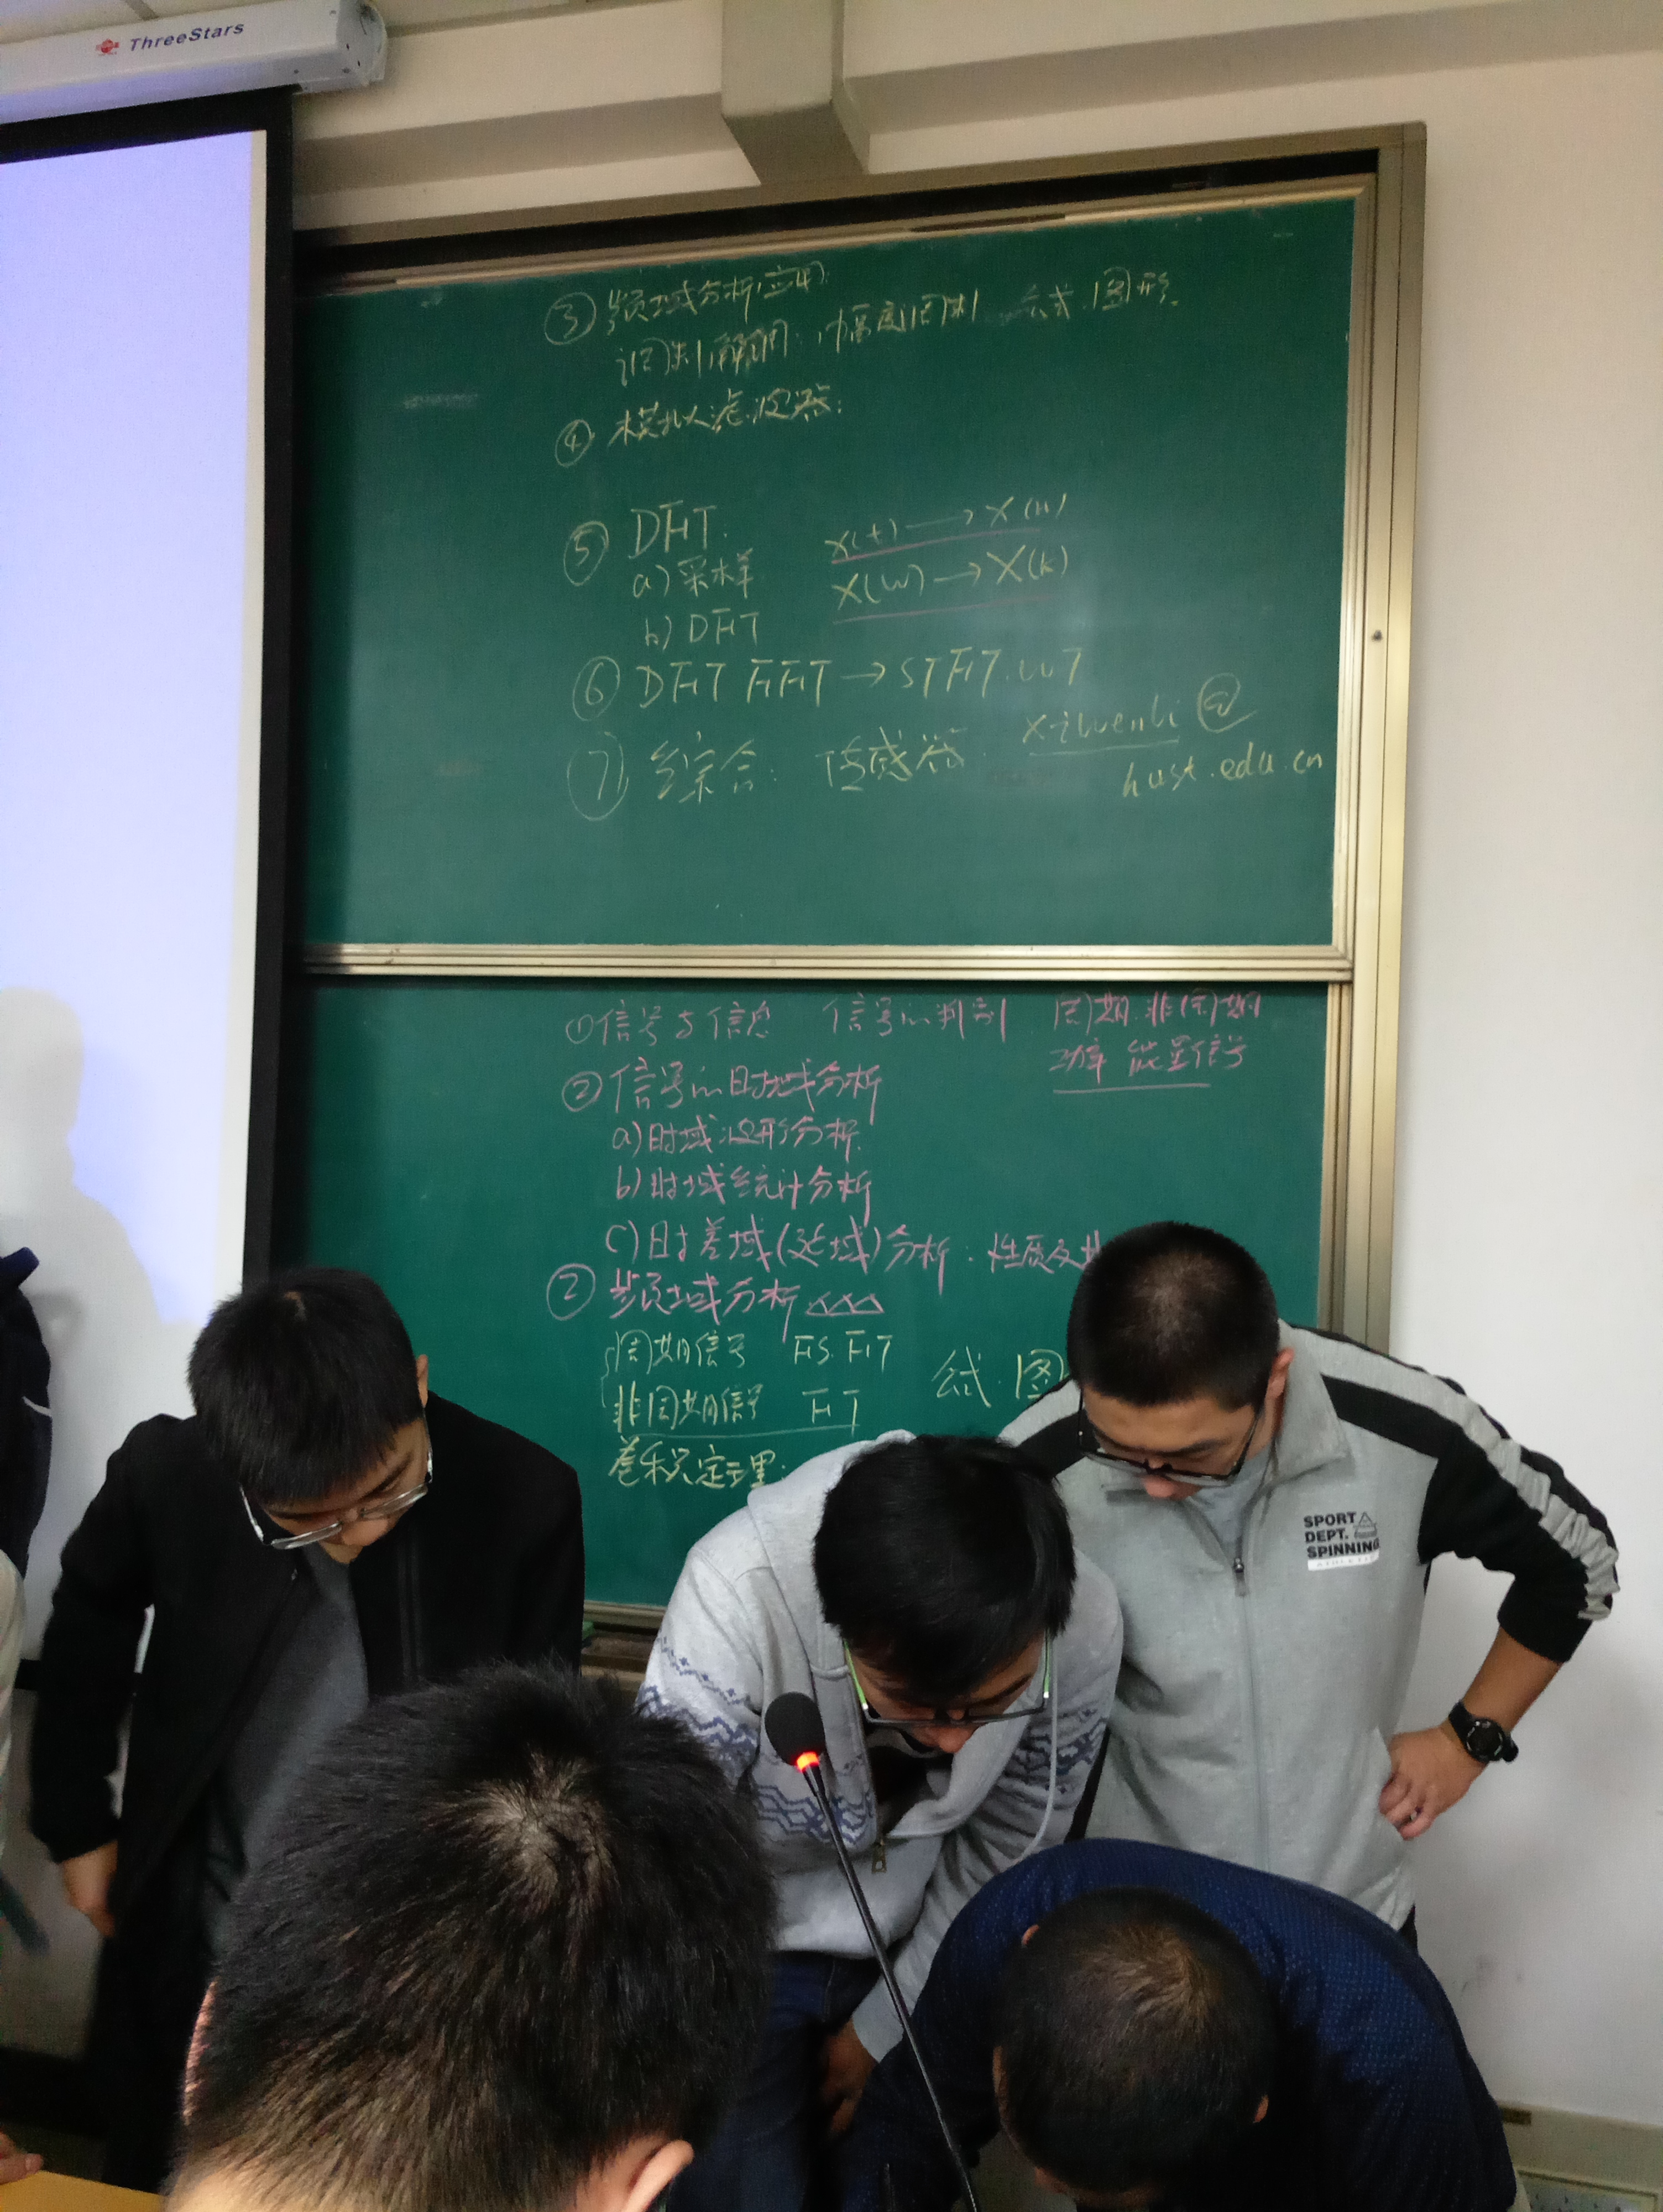 ThreeStars
③ 频域分析应用:
调制解调: 幅度调制 公式.图形.
④ 模拟滤波器:
⑤ DFT.
a) 采样 x(t) → x(n)
b) DFT X(w) → X(k)
⑥ DFT FFT → STFT.WT
⑦ 综合: 传感器. xiwenli@
hust.edu.cn
①信号与信息 信号的判别 周期.非周期
功率 能量信号
② 信号的时域分析
a)时域波形分析.
b)时域统计分析
c)时差域(延域)分析:性质及
② 频域分析
周期信号 FS.FT
非周期信号 FT 公式.图
卷积定理:
SPORT
DEPT.
SPINNING